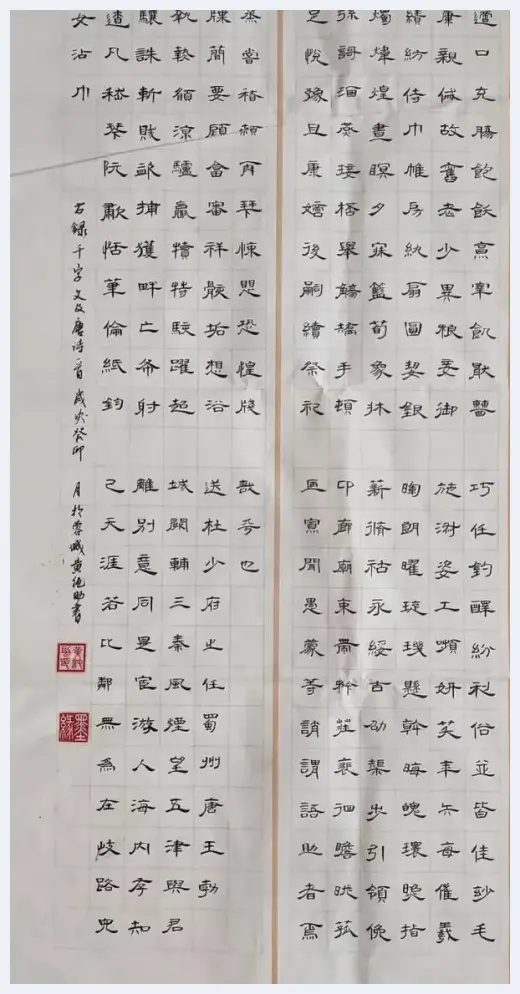 適口充腸飽飫烹宰飢厭糟
康親戚故舊老少異糧妾御
績紡侍巾帷房紈扇圓絜銀
燭煒煌晝瞑夕寐籃筍象床
弦歌酒讌接杯舉觴矯手頓
足悅豫且康嫡後嗣續祭祀
蒸嘗稽顙再拜悚懼恐惶牋
牒簡要顧答審詳骸垢想浴
執熱願涼驢騾犢特駭躍超
驤誅斬賊盜捕獲畔亡布射
遼丸嵇琴阮嘯恬筆倫紙鈞
巧任釣釋紛利俗並皆佳妙毛
施淑姿工嚬妍笑年矢每催羲
晦朗曜璇璣懸斡晦魄環照指
薪脩祜永綏吉劭矩步引領俛
仰廊廟束帶矜莊裵徊瞻眺孤
陋寡聞愚蒙等誚謂語助者焉
哉乎也
送杜少府之任蜀州唐王勃
城闕輔三秦風煙望五津與君
離別意同是宦游人海內存知
己天涯若比鄰無為在歧路兒
女沾巾
右錄千字文及唐詩一首歲次癸卯 月於蓉城黃純助書
墨緣